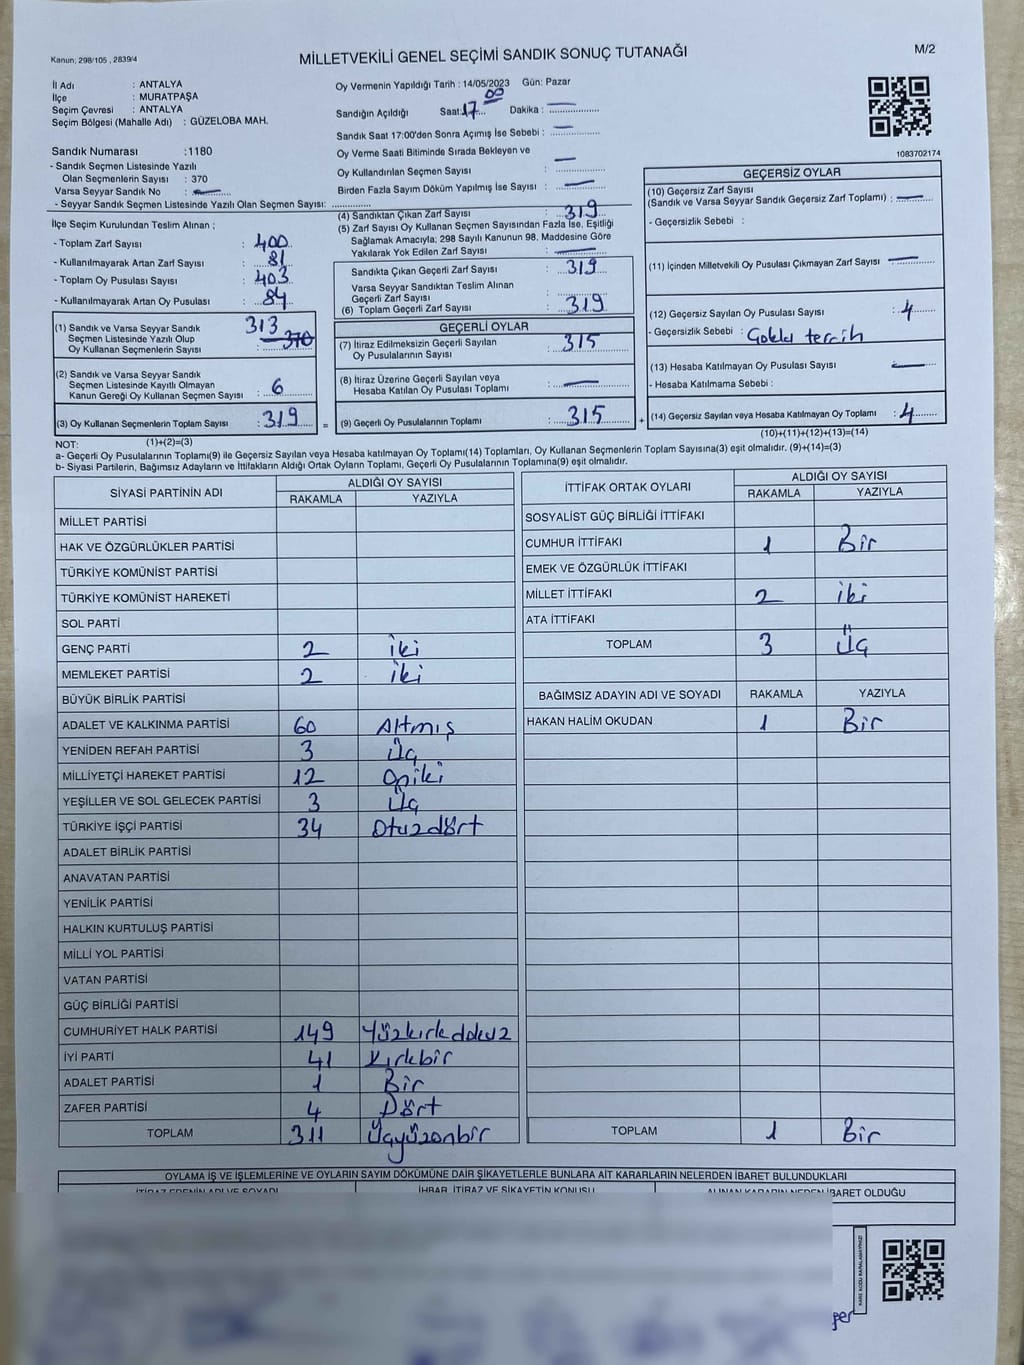 Kanun; 298/105 , 2839/4
MİLLETVEKİLİ GENEL SEÇİMİ SANDIK SONUÇ TUTANAĞI
M/2
İl Adı : ANTALYA
İlçe : MURATPAŞA
Seçim Çevresi : ANTALYA
Seçim Bölgesi (Mahalle Adı) : GÜZELOBA MAH.
Sandık Numarası :1180
- Sandık Seçmen Listesinde Yazılı
Olan Seçmenlerin Sayısı : 370
Varsa Seyyar Sandık No : —
- Seyyar Sandık Seçmen Listesinde Yazılı Olan Seçmen Sayısı: ..............
Oy Vermenin Yapıldığı Tarih : 14/05/2023 Gün: Pazar
Sandığın Açıldığı Saat:17 00 Dakika : —
Sandık Saat 17:00'den Sonra Açımış İse Sebebi : —
Oy Verme Saati Bitiminde Sırada Bekleyen ve
Oy Kullandırılan Seçmen Sayısı —
Birden Fazla Sayım Döküm Yapılmış İse Sayısı : —
1083702174
İlçe Seçim Kurulundan Teslim Alınan ;
- Toplam Zarf Sayısı : 400
- Kullanılmayarak Artan Zarf Sayısı : 81
- Toplam Oy Pusulası Sayısı : 403
- Kullanılmayarak Artan Oy Pusulası : 84
(1) Sandık ve Varsa Seyyar Sandık 313
Seçmen Listesinde Yazılı Olup 370
Oy Kullanan Seçmenlerin Sayısı
(2) Sandık ve Varsa Seyyar Sandık
Seçmen Listesinde Kayıtlı Olmayan
Kanun Gereği Oy Kullanan Seçmen Sayısı : 6
(3) Oy Kullanan Seçmenlerin Toplam Sayısı : 319
(1)+(2)=(3)
(4) Sandıktan Çıkan Zarf Sayısı : 319
(5) Zarf Sayısı Oy Kullanan Seçmen Sayısından Fazla İse, Eşitliği
Sağlamak Amacıyla; 298 Sayılı Kanunun 98. Maddesine Göre
Yakılarak Yok Edilen Zarf Sayısı : —
Sandıkta Çıkan Geçerli Zarf Sayısı : 319
Varsa Seyyar Sandıktan Teslim Alınan
Geçerli Zarf Sayısı
(6) Toplam Geçerli Zarf Sayısı : 319
GEÇERLİ OYLAR
(7) İtiraz Edilmeksizin Geçerli Sayılan
Oy Pusulalarının Sayısı : 315
(8) İtiraz Üzerine Geçerli Sayılan veya
Hesaba Katılan Oy Pusulası Toplamı : —
= (9) Geçerli Oy Pusulalarının Toplamı : 315
GEÇERSİZ OYLAR
(10) Geçersiz Zarf Sayısı
(Sandık ve Varsa Seyyar Sandık Geçersiz Zarf Toplamı) : —
- Geçersizlik Sebebi :
(11) İçinden Milletvekili Oy Pusulası Çıkmayan Zarf Sayısı : —
(12) Geçersiz Sayılan Oy Pusulası Sayısı : 4
- Geçersizlik Sebebi : Çoklu tercih
(13) Hesaba Katılmayan Oy Pusulası Sayısı : —
- Hesaba Katılmama Sebebi :
+ (14) Geçersiz Sayılan veya Hesaba Katılmayan Oy Toplamı : 4
(10)+(11)+(12)+(13)=(14)
NOT:
a- Geçerli Oy Pusulalarının Toplamı(9) ile Geçersiz Sayılan veya Hesaba katılmayan Oy Toplamı(14) Toplamları, Oy Kullanan Seçmenlerin Toplam Sayısına(3) eşit olmalıdır. (9)+(14)=(3)
b- Siyasi Partilerin, Bağımsız Adayların ve İttifakların Aldığı Ortak Oyların Toplamı, Geçerli Oy Pusulalarının Toplamına(9) eşit olmalıdır.
SİYASİ PARTİNİN ADI ALDIĞI OY SAYISI
RAKAMLA YAZIYLA
MİLLET PARTİSİ
HAK VE ÖZGÜRLÜKLER PARTİSİ
TÜRKİYE KOMÜNİST PARTİSİ
TÜRKİYE KOMÜNİST HAREKETİ
SOL PARTİ
GENÇ PARTİ 2 iki
MEMLEKET PARTİSİ 2 iki
BÜYÜK BİRLİK PARTİSİ
ADALET VE KALKINMA PARTİSİ 60 Altmış
YENİDEN REFAH PARTİSİ 3 Üç
MİLLİYETÇİ HAREKET PARTİSİ 12 Oniki
YEŞİLLER VE SOL GELECEK PARTİSİ 3 Üç
TÜRKİYE İŞÇİ PARTİSİ 34 Otuzdört
ADALET BİRLİK PARTİSİ
ANAVATAN PARTİSİ
YENİLİK PARTİSİ
HALKIN KURTULUŞ PARTİSİ
MİLLİ YOL PARTİSİ
VATAN PARTİSİ
GÜÇ BİRLİĞİ PARTİSİ
CUMHURİYET HALK PARTİSİ 149 Yüzkırkdokuz
İYİ PARTİ 41 Kırkbir
ADALET PARTİSİ 1 Bir
ZAFER PARTİSİ 4 Dört
TOPLAM 311 Üçyüzonbir
İTTİFAK ORTAK OYLARI ALDIĞI OY SAYISI
RAKAMLA YAZIYLA
SOSYALİST GÜÇ BİRLİĞİ İTTİFAKI
CUMHUR İTTİFAKI 1 Bir
EMEK VE ÖZGÜRLÜK İTTİFAKI
MİLLET İTTİFAKI 2 iki
ATA İTTİFAKI
TOPLAM 3 Üç
BAĞIMSIZ ADAYIN ADI VE SOYADI RAKAMLA YAZIYLA
HAKAN HALİM OKUDAN 1 Bir
TOPLAM 1 Bir
OYLAMA İŞ VE İŞLEMLERİNE VE OYLARIN SAYIM DÖKÜMÜNE DAİR ŞİKAYETLERLE BUNLARA AİT KARARLARIN NELERDEN İBARET BULUNDUKLARI
İTİRAZ EDENİN ADI VE SOYADI İHBAR, İTİRAZ VE ŞİKAYETİN KONUSU ALINAN KARARIN NEDEN İBARET OLDUĞU
KARE KODU KARALAMAYINIZ!